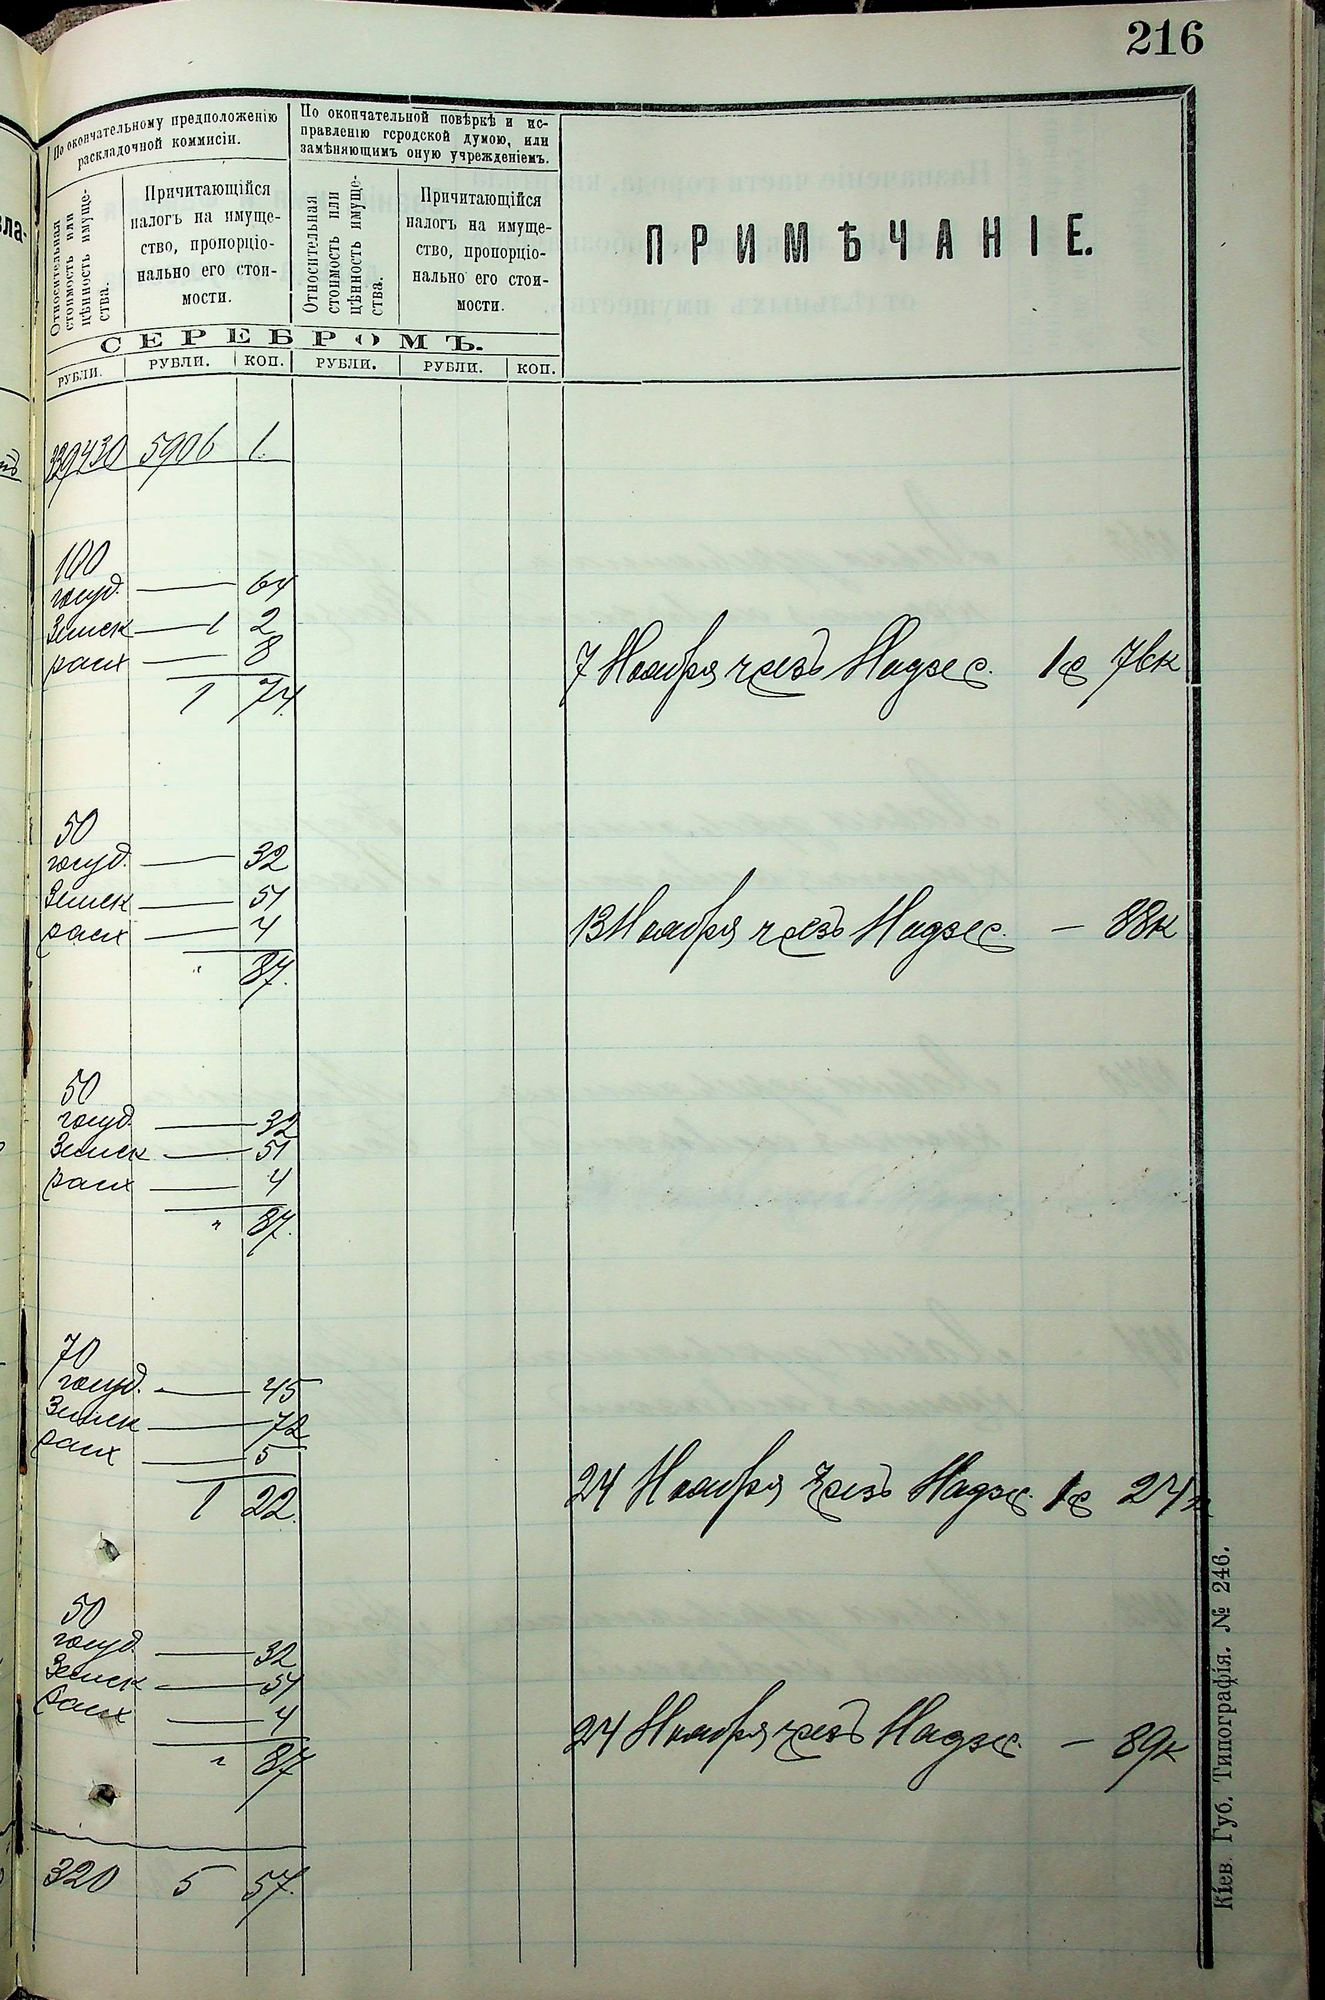 216
По окончательному предположенію
раскладочной коммисіи.
По окончательной повѣркѣ и ис-
правленію городской думою, или
замѣняющимъ оную учрежденіемъ.
Относительная
стоимость или
цѣнность имуще-
ства.
Причитающійся
налогъ на имуще-
ство, пропорціо-
нально его стои-
мости.
Относительная
стоимость или
цѣнность имуще-
ства.
Причитающійся
налогъ на имуще-
ство, пропорціо-
нально его стои-
мости.
ПРИМѢЧАНІЕ.
СЕРЕБРОМЪ.
РУБЛИ. РУБЛИ. КОП. РУБЛИ. РУБЛИ. КОП.
339430 5906 1
100
госуд. — 64
Земск — 1 2
расх — 8
1 74.
7 Ноября чрезъ Надзс. 1р 76к
50
госуд. — 32
Земск — 51
расх — 4
" 87.
13 Ноября чрезъ Надзс. — 88к
50
госуд. — 32
Земск — 51
расх — 4
" 87.
70
госуд. — 45
Земск — 72
расх — 5
1 22.
24 Ноября чрезъ Надзс. 1р 24к
50
госуд. — 32
Земск — 51
расх — 4
" 87
24 Ноября чрезъ Надзс. — 89к
320 5 57.
Кіев. Губ. Типографія. № 246.